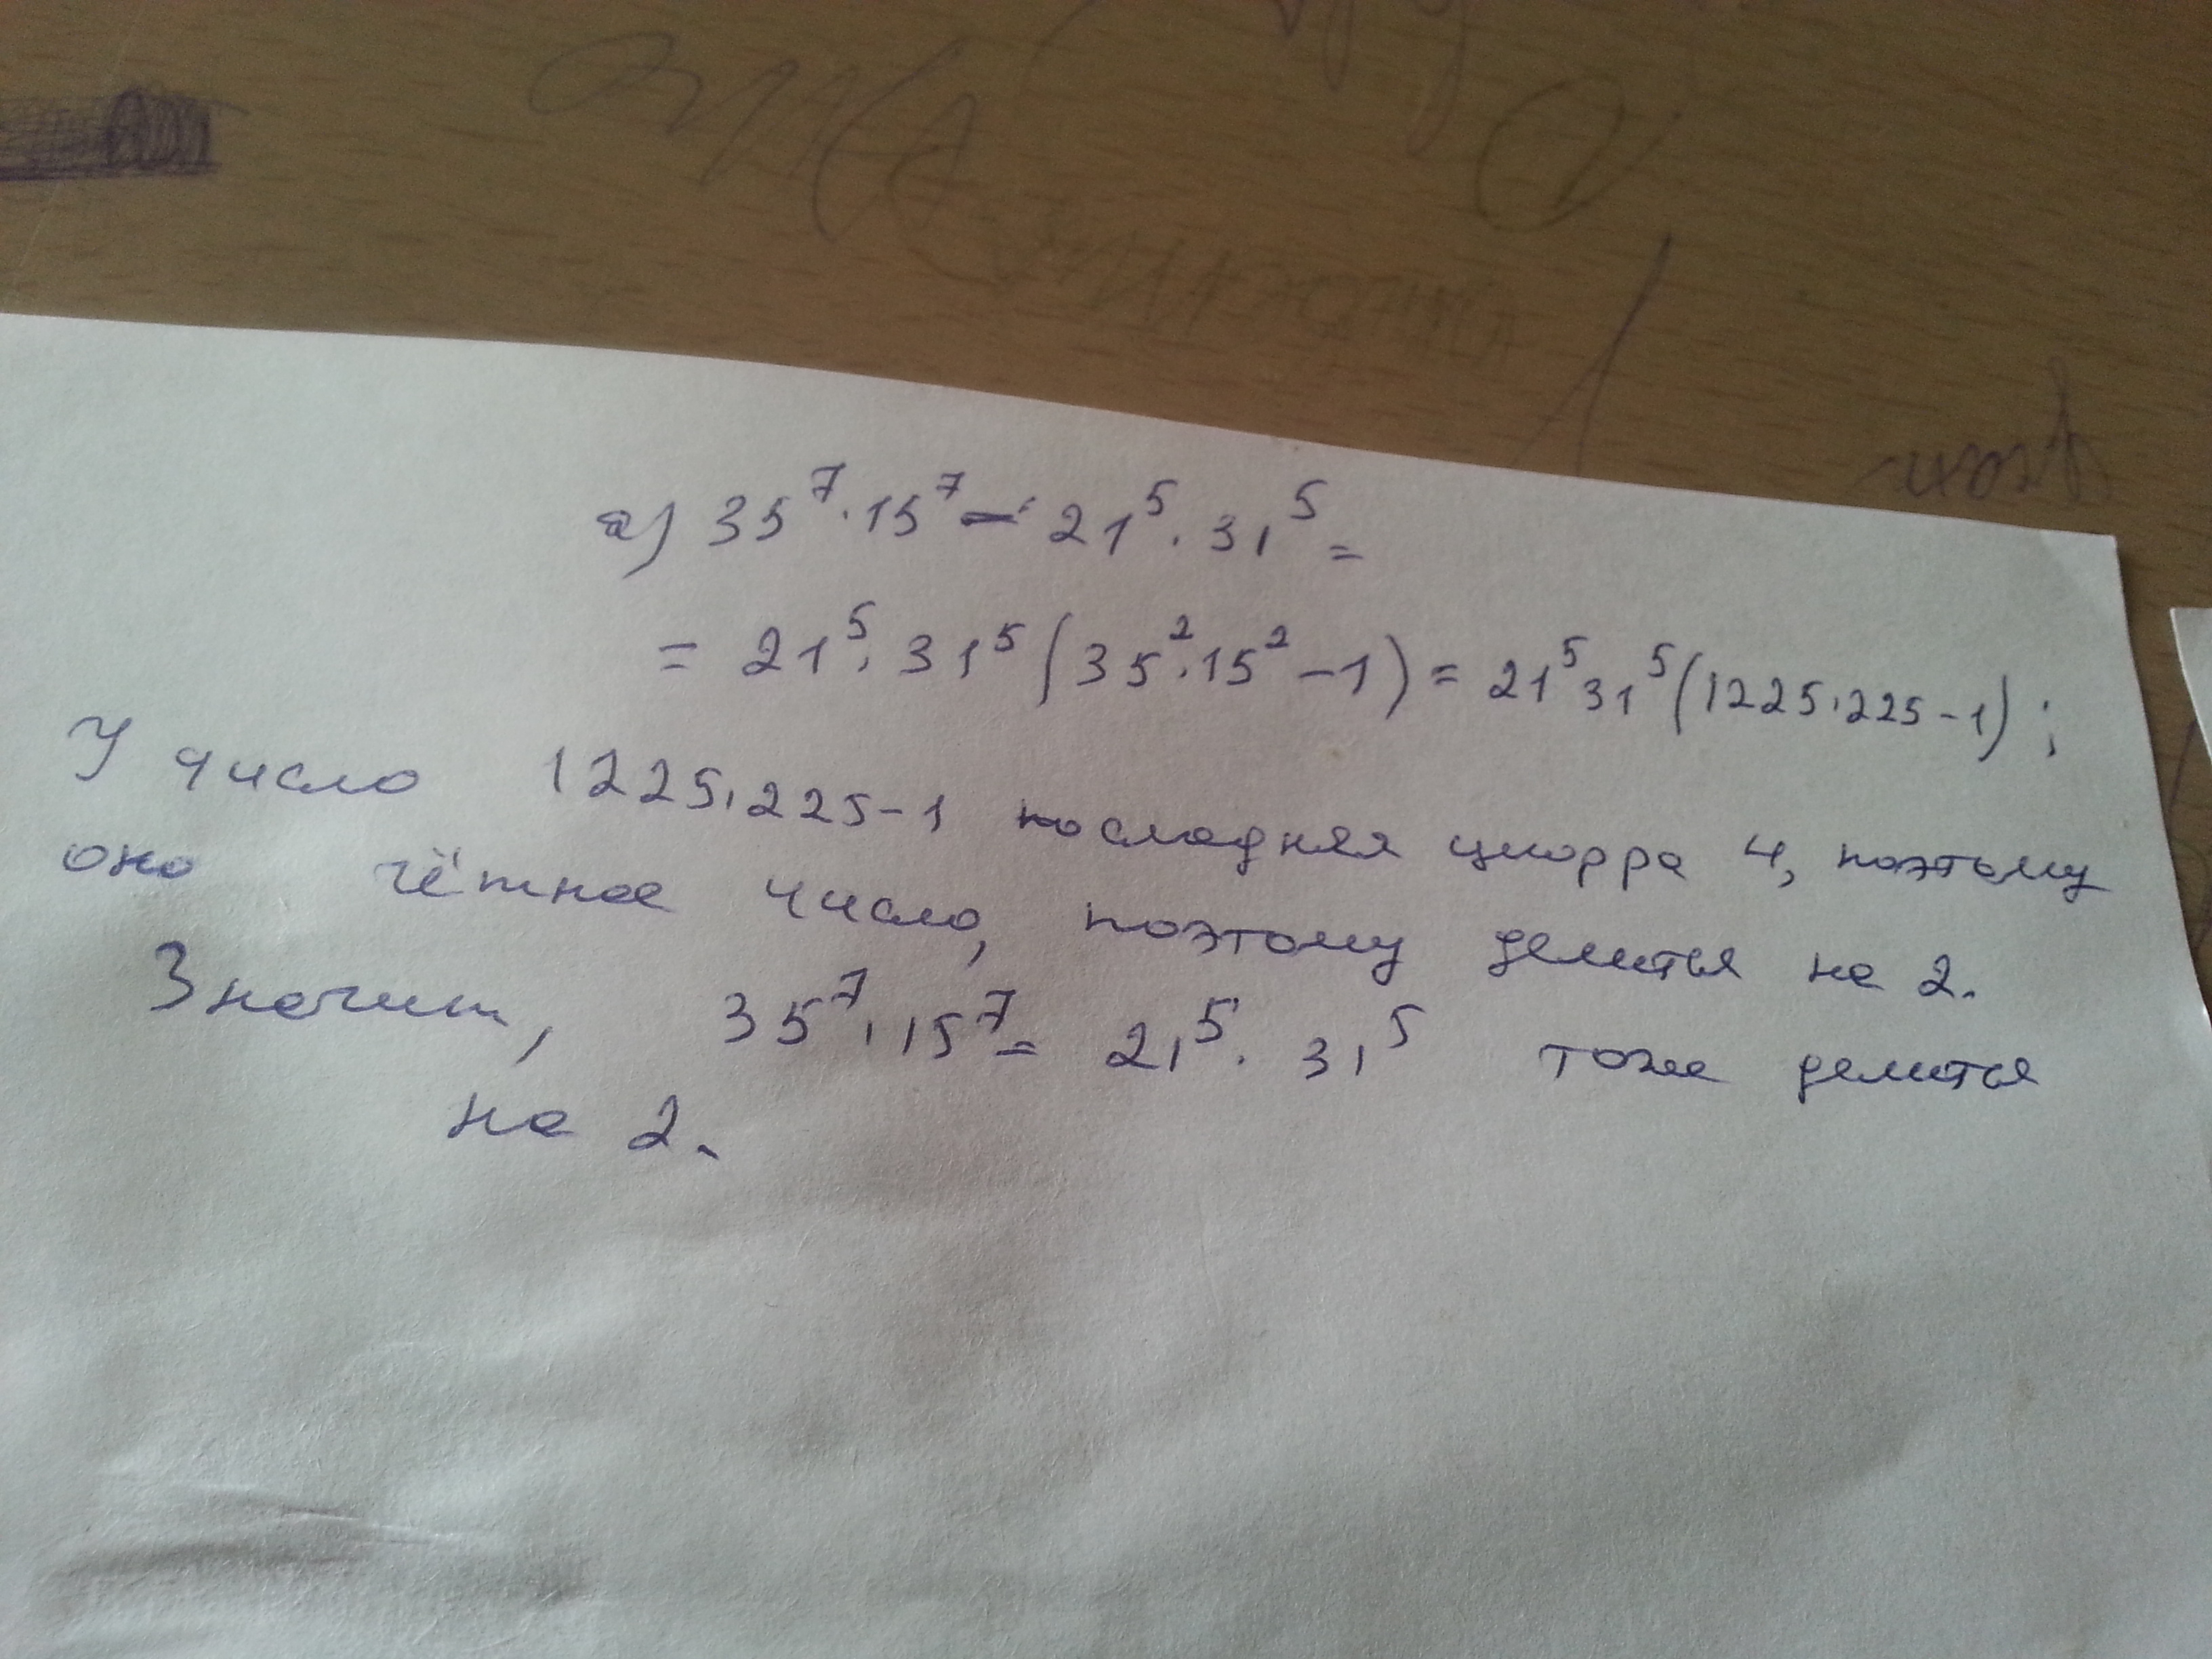 а) 35⁷·15⁷ - 21⁵·31⁵ =
= 21⁵·31⁵(35²·15²-1) = 21⁵31⁵(1225·225-1);
У число 1225·225-1 последняя циорра 4, поэтому
оно чётное число, поэтому делится на 2.
Значит, 35⁷·15⁷= 21⁵·31⁵ тоже делится
на 2.